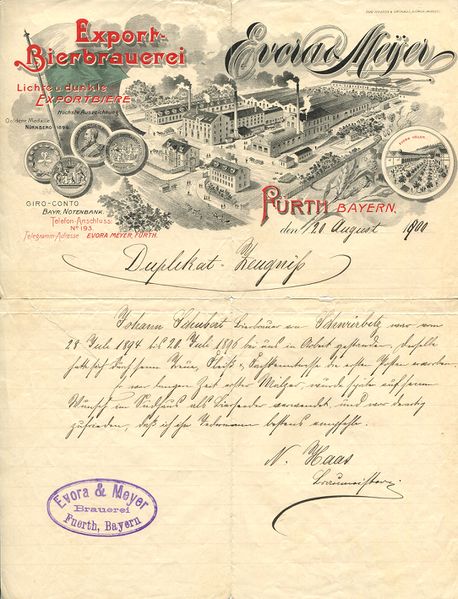 Export-
Bierbrauerei
Evora & Meyer
Lichte u. dunkle
EXPORTBIERE
Höchste Auszeichnung
Goldene Medaille
NÜRNBERG 1896.
GIRO-CONTO
BAYR. NOTENBANK.
Telefon-Anschluss:
No 193.
Telegramm-Adresse EVORA MEYER, FÜRTH.
FÜRTH BAYERN,
den 20 August 1900
Duplikat-Zeugniß
Johann Schubert Bierbrauer von war vom
28 Juli 1894 bis 20 Juli 1896 bei uns in Arbeit gestanden, derselbe
hat sich durch seine Treue, Fleiß u. Fachkenntnisse
war einige Zeit erster Mälzer, wurde später auf seinen
Wunsch im Sudhaus als Biersieder verwendet, und war derartig
zufrieden, daß ich ihn Jedermann bestens empfehle.
N. Haas
Braumeister
Evora & Meyer
Brauerei
Fuerth, Bayern